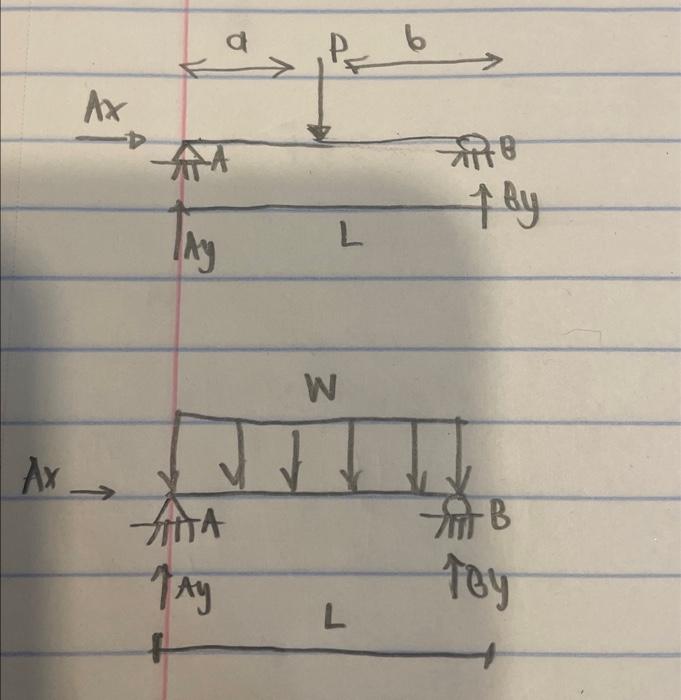 a P b
Ax
A B
Ay L By
W
Ax
A B
Ay By
L